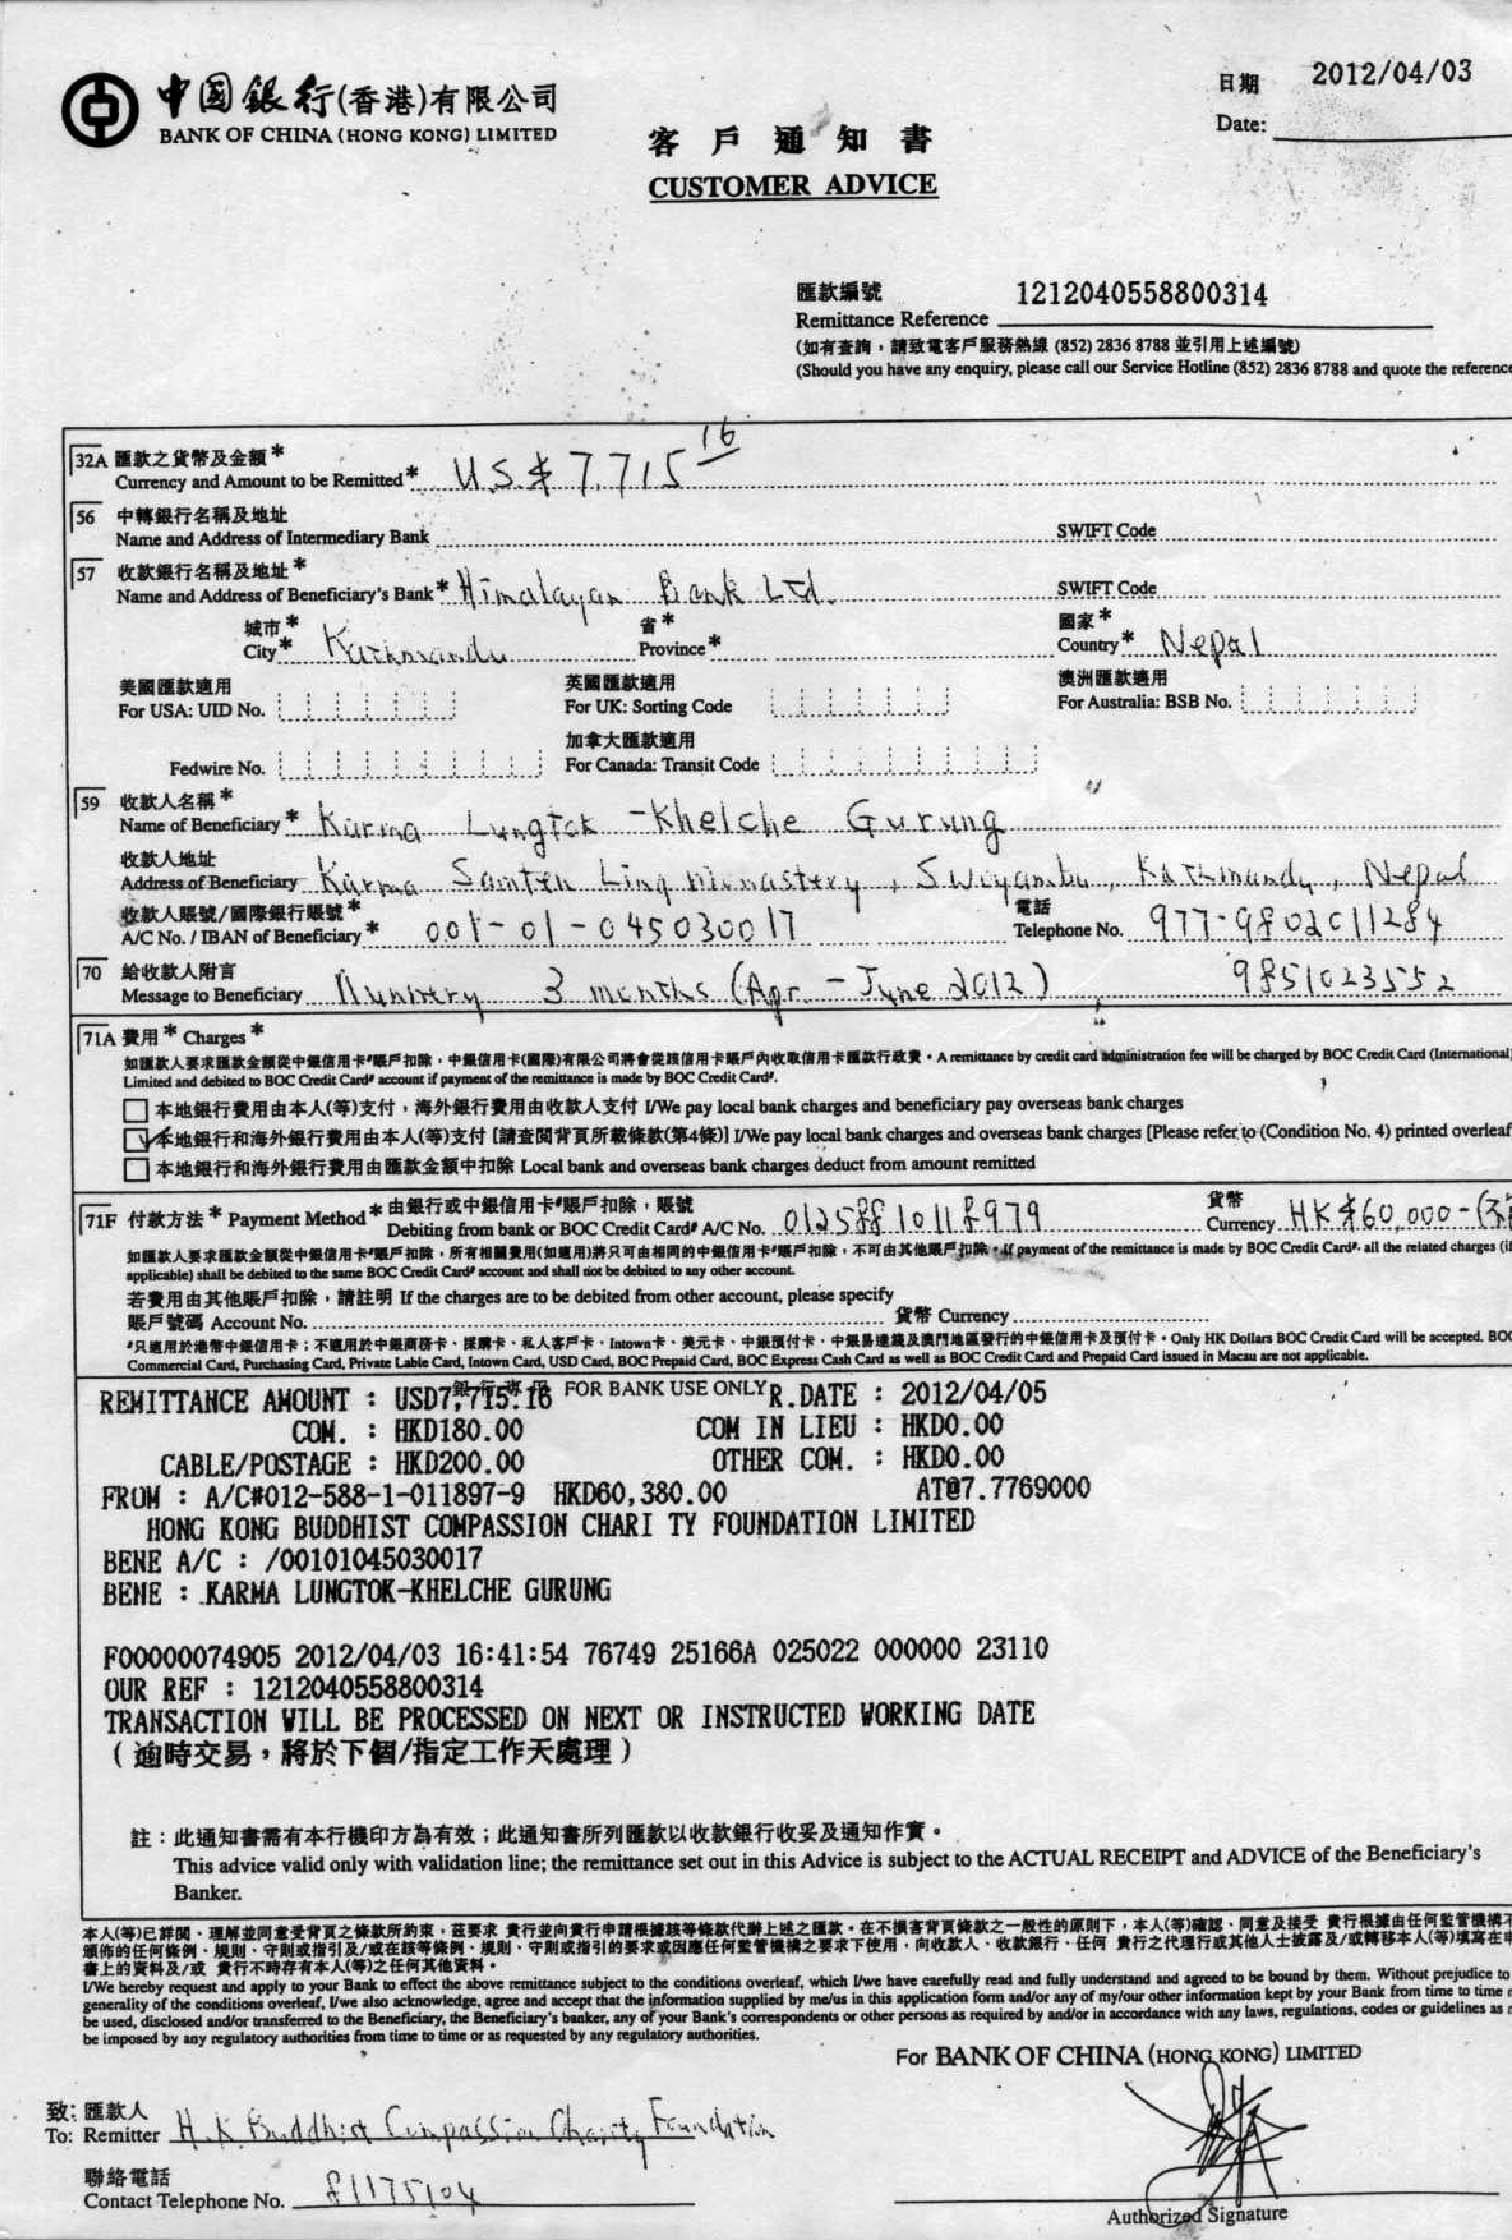 中國銀行(香港)有限公司
BANK OF CHINA (HONG KONG) LIMITED
日期 2012/04/03
Date:
客戶通知書
CUSTOMER ADVICE
匯款編號 1212040558800314
Remittance Reference
(如有查詢，請致電客戶服務熱線 (852) 2836 8788 並引用上述編號)
(Should you have any enquiry, please call our Service Hotline (852) 2836 8788 and quote the reference
32A 匯款之貨幣及金額*
Currency and Amount to be Remitted* US$ 7,715 16
56 中轉銀行名稱及地址
Name and Address of Intermediary Bank SWIFT Code
57 收款銀行名稱及地址*
Name and Address of Beneficiary's Bank* Himalayan Bank Ltd. SWIFT Code
城市* 省* 國家*
City* Kathmandu Province* Country* Nepal
美國匯款適用 英國匯款適用 澳洲匯款適用
For USA: UID No. For UK: Sorting Code For Australia: BSB No.
加拿大匯款適用
Fedwire No. For Canada: Transit Code
59 收款人名稱*
Name of Beneficiary* Karma Lungtok -Khelche Gurung
收款人地址
Address of Beneficiary Karma Samten Ling Monastery, Swyambu, Kathmandu, Nepal
收款人賬號/國際銀行賬號* 電話
A/C No. / IBAN of Beneficiary* 001-01-045030017 Telephone No. 977-9802011284
70 給收款人附言
Message to Beneficiary Nunnery 3 months (Apr. - June 2012) 9851023552
71A 費用* Charges*
如匯款人要求匯款金額從中銀信用卡#賬戶扣除，中銀信用卡(國際)有限公司將會從該信用卡賬戶內收取信用卡匯款行政費。A remittance by credit card administration fee will be charged by BOC Credit Card (International)
Limited and debited to BOC Credit Card# account if payment of the remittance is made by BOC Credit Card#.
本地銀行費用由本人(等)支付，海外銀行費用由收款人支付 I/We pay local bank charges and beneficiary pay overseas bank charges
本地銀行和海外銀行費用由本人(等)支付 [請查閱背頁所載條款(第4條)] I/We pay local bank charges and overseas bank charges [Please refer to (Condition No. 4) printed overleaf
本地銀行和海外銀行費用由匯款金額中扣除 Local bank and overseas bank charges deduct from amount remitted
71F 付款方法* Payment Method* 由銀行或中銀信用卡#賬戶扣除，賬號 貨幣
Debiting from bank or BOC Credit Card# A/C No. 01258810118979 Currency HK$60,000-
如匯款人要求匯款金額從中銀信用卡#賬戶扣除，所有相關費用(如適用)將只可由相同的中銀信用卡#賬戶扣除，不可由其他賬戶扣除。If payment of the remittance is made by BOC Credit Card#, all the related charges (if
applicable) shall be debited to the same BOC Credit Card# account and shall not be debited to any other account.
若費用由其他賬戶扣除，請註明 If the charges are to be debited from other account, please specify
賬戶號碼 Account No. 貨幣 Currency
#只適用於港幣中銀信用卡；不適用於中銀商務卡、採購卡、私人客戶卡、Intown卡、美元卡、中銀預付卡、中銀易達錢及澳門地區發行的中銀信用卡及預付卡。Only HK Dollars BOC Credit Card will be accepted. BOC
Commercial Card, Purchasing Card, Private Lable Card, Intown Card, USD Card, BOC Prepaid Card, BOC Express Cash Card as well as BOC Credit Card and Prepaid Card issued in Macau are not applicable.
銀行專用 FOR BANK USE ONLY
REMITTANCE AMOUNT : USD7,715.16 R.DATE : 2012/04/05
COM. : HKD180.00 COM IN LIEU : HKD0.00
CABLE/POSTAGE : HKD200.00 OTHER COM. : HKD0.00
FROM : A/C#012-588-1-011897-9 HKD60,380.00 AT@7.7769000
HONG KONG BUDDHIST COMPASSION CHARI TY FOUNDATION LIMITED
BENE A/C : /00101045030017
BENE : KARMA LUNGTOK-KHELCHE GURUNG
F00000074905 2012/04/03 16:41:54 76749 25166A 025022 000000 23110
OUR REF : 1212040558800314
TRANSACTION WILL BE PROCESSED ON NEXT OR INSTRUCTED WORKING DATE
(逾時交易，將於下個/指定工作天處理)
註：此通知書需有本行機印方為有效；此通知書所列匯款以收款銀行收妥及通知作實。
This advice valid only with validation line; the remittance set out in this Advice is subject to the ACTUAL RECEIPT and ADVICE of the Beneficiary's
Banker.
本人(等)已詳閱、理解並同意受背頁之條款所約束，茲要求 貴行並向貴行申請根據該等條款代辦上述之匯款。在不損害背頁條款之一般性的原則下，本人(等)確認、同意及接受 貴行根據由任何監管機構不
頒佈的任何條例、規則、守則或指引及/或在該等條例、規則、守則或指引的要求或因應任何監管機構之要求下使用、向收款人、收款銀行、任何 貴行之代理行或其他人士披露及/或轉移本人(等)填寫在申
書上的資料及/或 貴行不時存有本人(等)之任何其他資料。
I/We hereby request and apply to your Bank to effect the above remittance subject to the conditions overleaf, which I/we have carefully read and fully understand and agreed to be bound by them. Without prejudice to
generality of the conditions overleaf, I/we also acknowledge, agree and accept that the information supplied by me/us in this application form and/or any of my/our other information kept by your Bank from time to time
be used, disclosed and/or transferred to the Beneficiary, the Beneficiary's banker, any of your Bank's correspondents or other persons as required by and/or in accordance with any laws, regulations, codes or guidelines as
be imposed by any regulatory authorities from time to time or as requested by any regulatory authorities.
For BANK OF CHINA (HONG KONG) LIMITED
致: 匯款人
To: Remitter H.K. Buddhist Compassion Charity Foundation
聯絡電話
Contact Telephone No. 81175104
Authorized Signature